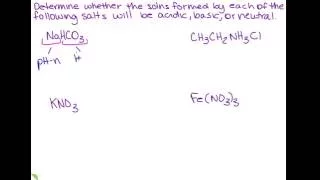 Determine whether the solns formed by each of the
following salts will be acidic, basic, or neutral.
NaHCO3 CH3CH2NH3Cl
pH-n H
KNO3 Fe(NO3)3